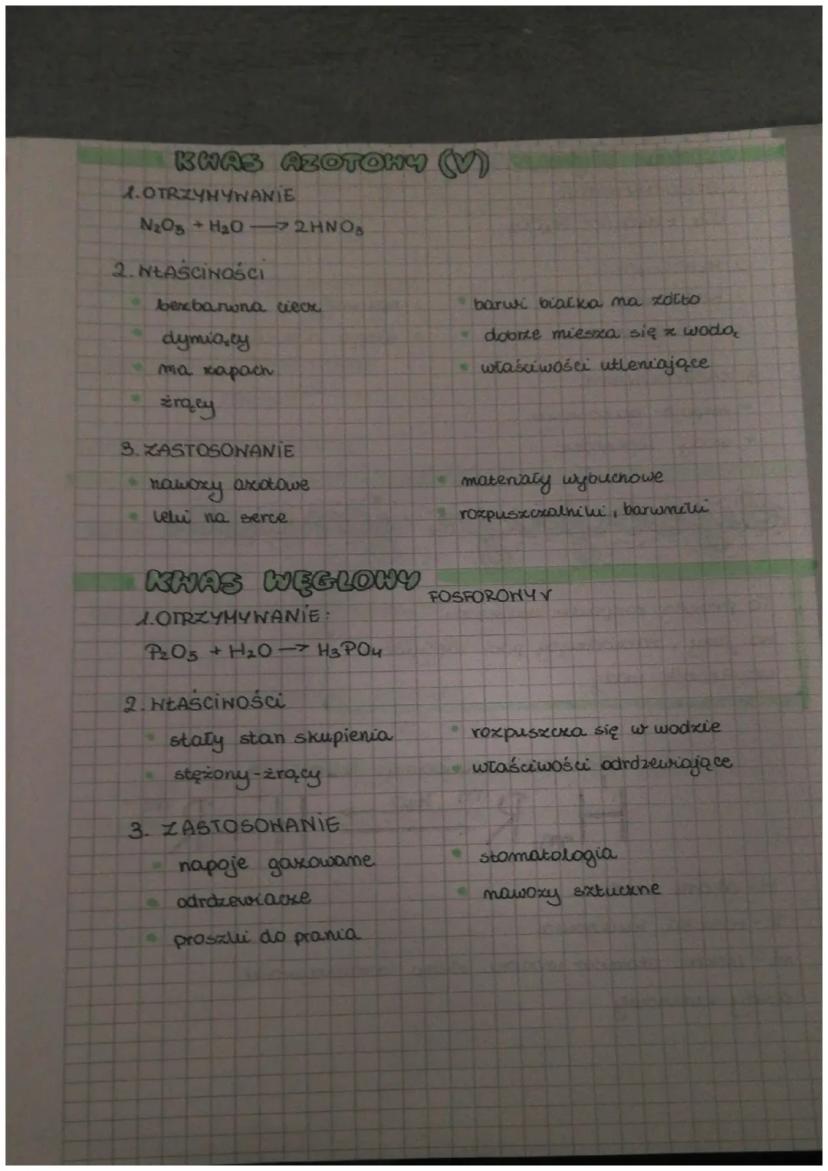 KWAS AZOTOWY (V)
1. OTRZYMYWANIE
N₂O₅ + H₂O → 2HNO₃
2. WŁAŚCIWOŚCI
bezbarwna ciecz
dymiący
ma zapach
żrący
barwi białka na żółto
dobrze miesza się z wodą
właściwości utleniające
3. ZASTOSOWANIE
nawozy azotowe
leki na serce
materiały wybuchowe
rozpuszczalniki, barwniki
KWAS WĘGLOWY FOSFOROWY V
1. OTRZYMYWANIE:
P₂O₅ + H₂O → H₃PO₄
2. WŁAŚCIWOŚCI
stały stan skupienia
stężony-żrący
rozpuszcza się w wodzie
właściwości odrdzewiające
3. ZASTOSOWANIE
napoje gazowane
odrdzewiacze
proszki do prania
stomatologia
nawozy sztuczne